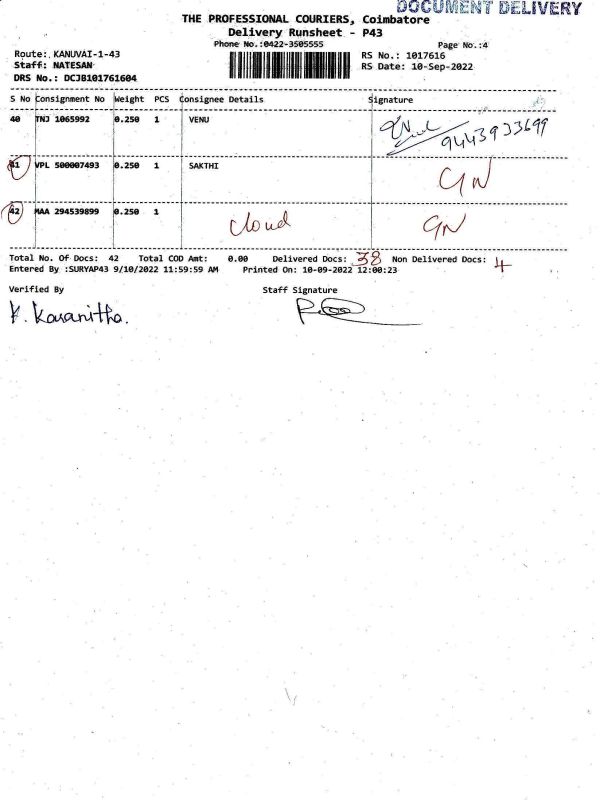 DOCUMENT DELIVERY
THE PROFESSIONAL COURIERS, Coimbatore
Delivery Runsheet - P43
Phone No.:0422-3505555
Page No.:4
Route: KANUVAI-1-43
RS No.: 1017616
Staff: NATESAN
RS Date: 10-Sep-2022
DRS No.: DCJB101761604
S No Consignment No Weight PCS Consignee Details Signature
40 TNJ 1065992 0.250 1 VENU
9443933699
41 VPL 500007493 0.250 1 SAKTHI GN
42 MAA 294539899 0.250 1 cloud GN
Total No. Of Docs: 42 Total COD Amt: 0.00 Delivered Docs: 38 Non Delivered Docs: 4
Entered By :SURYAP43 9/10/2022 11:59:59 AM Printed On: 10-09-2022 12:00:23
Verified By Staff Signature
K. Kavanitha.